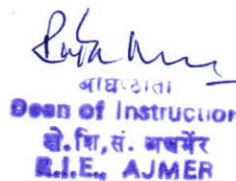 अधिष्ठाता
Dean of Instruction
क्षे.शि.सं. अजमेर
R.I.E., AJMER